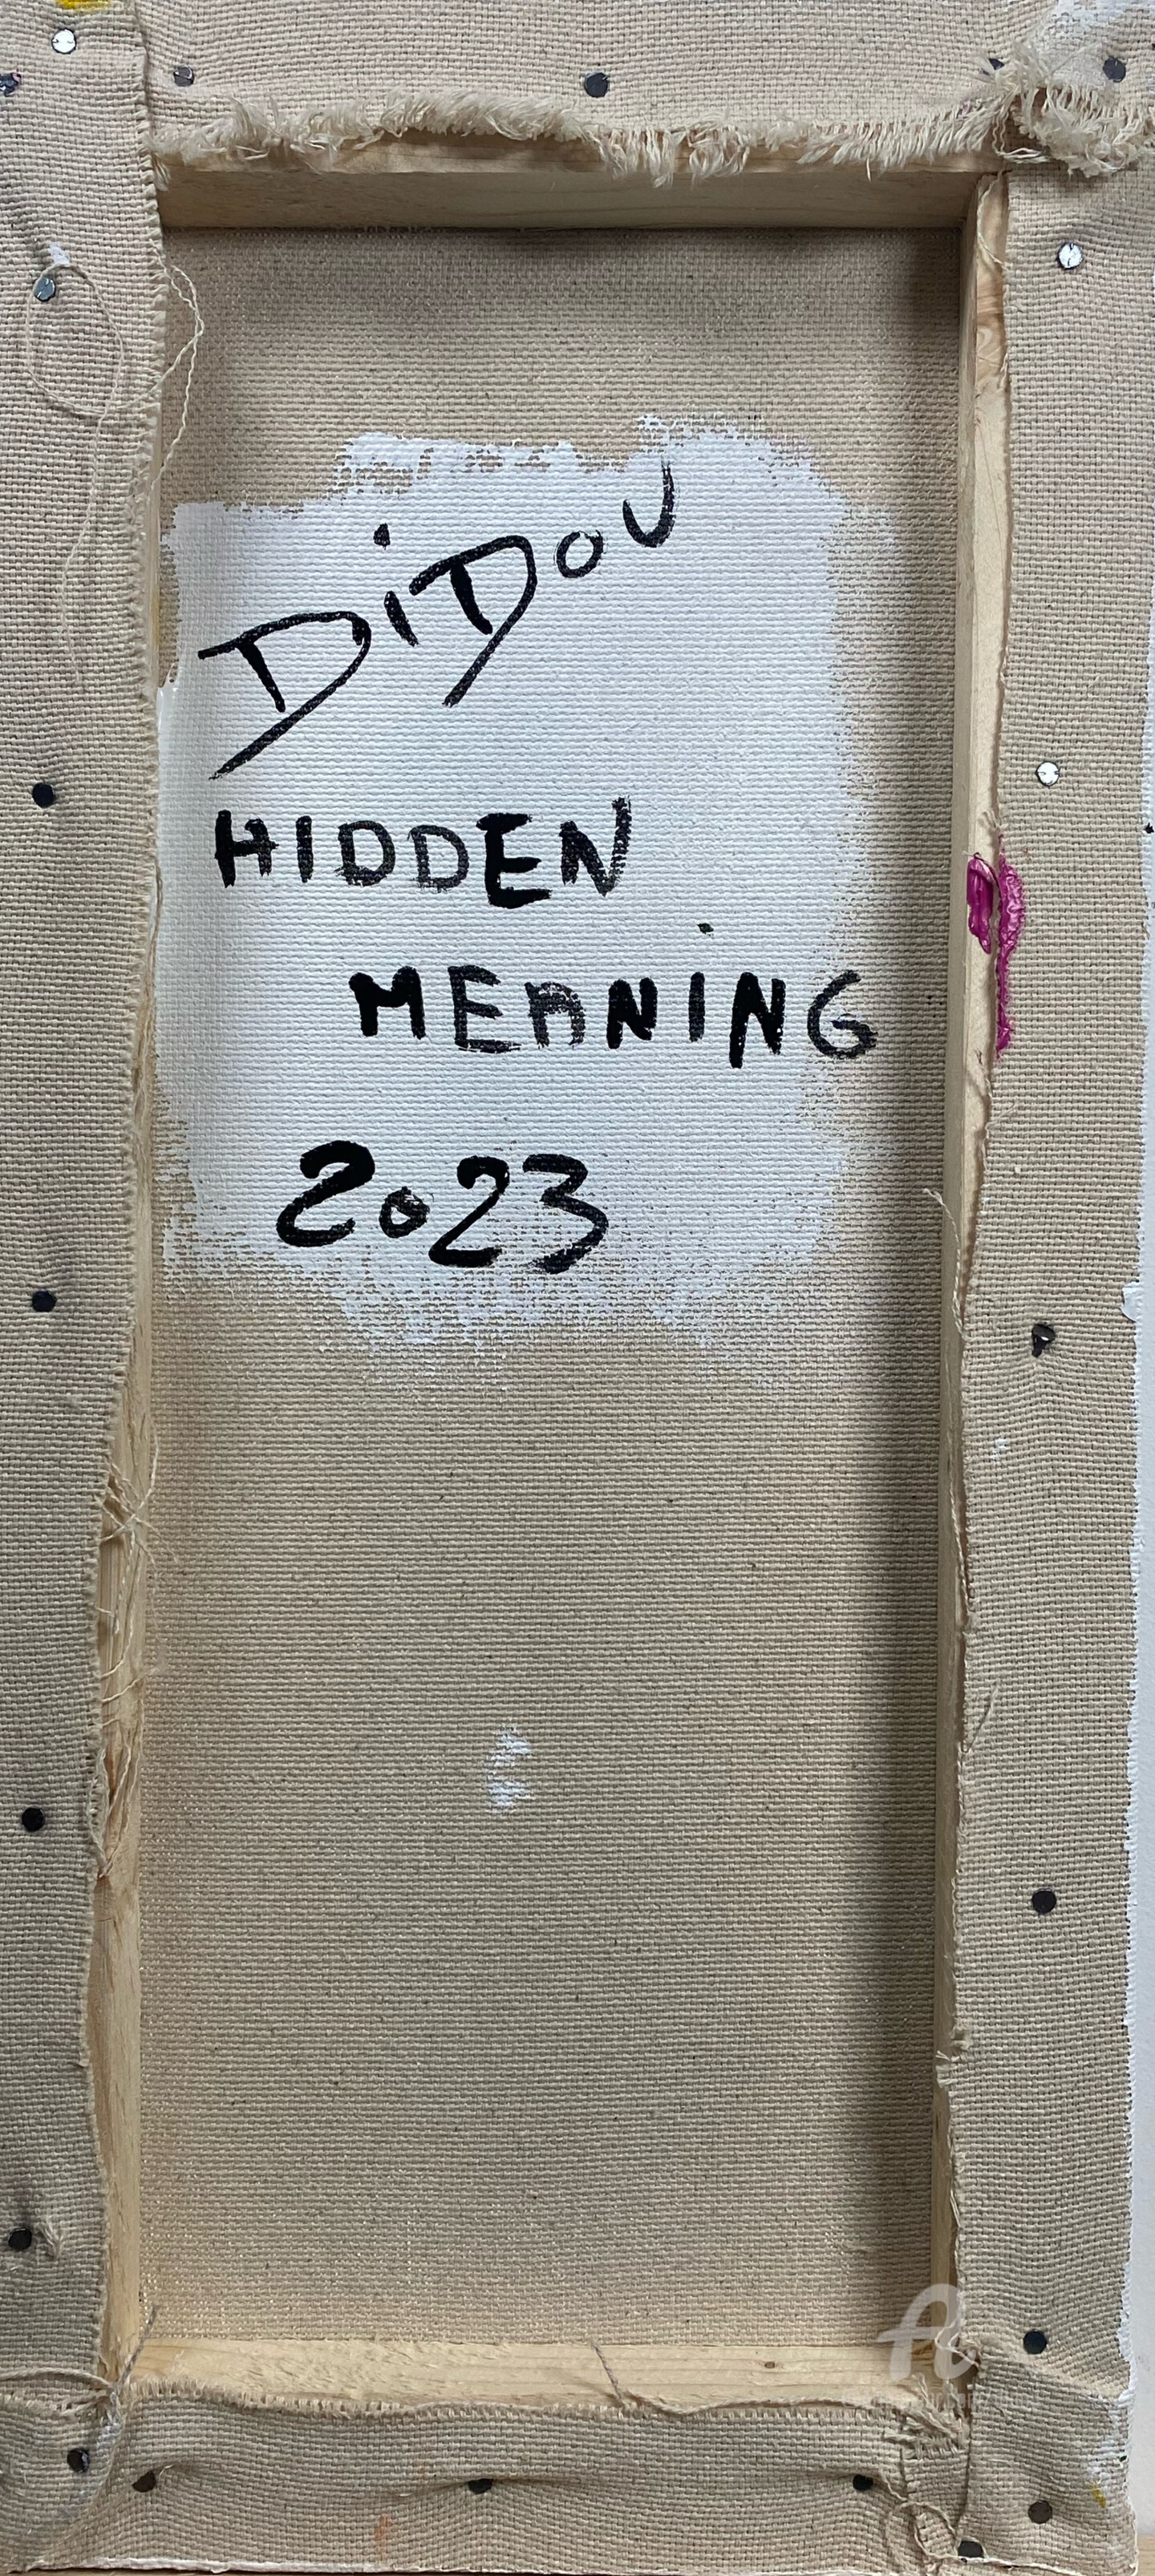 DiDou
HIDDEN
MEANiNG
2023